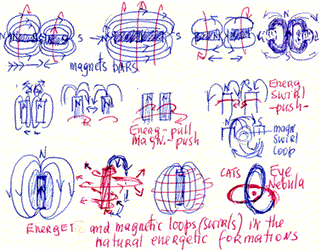 N S
magnets BARS
Energ - pull
Magn. - push
Energ
swirl
-push-
magn
swirl
loop
CATS Eye
Nebula
ENERGET and magnetic loops (swirls) in the
natural energetic formations